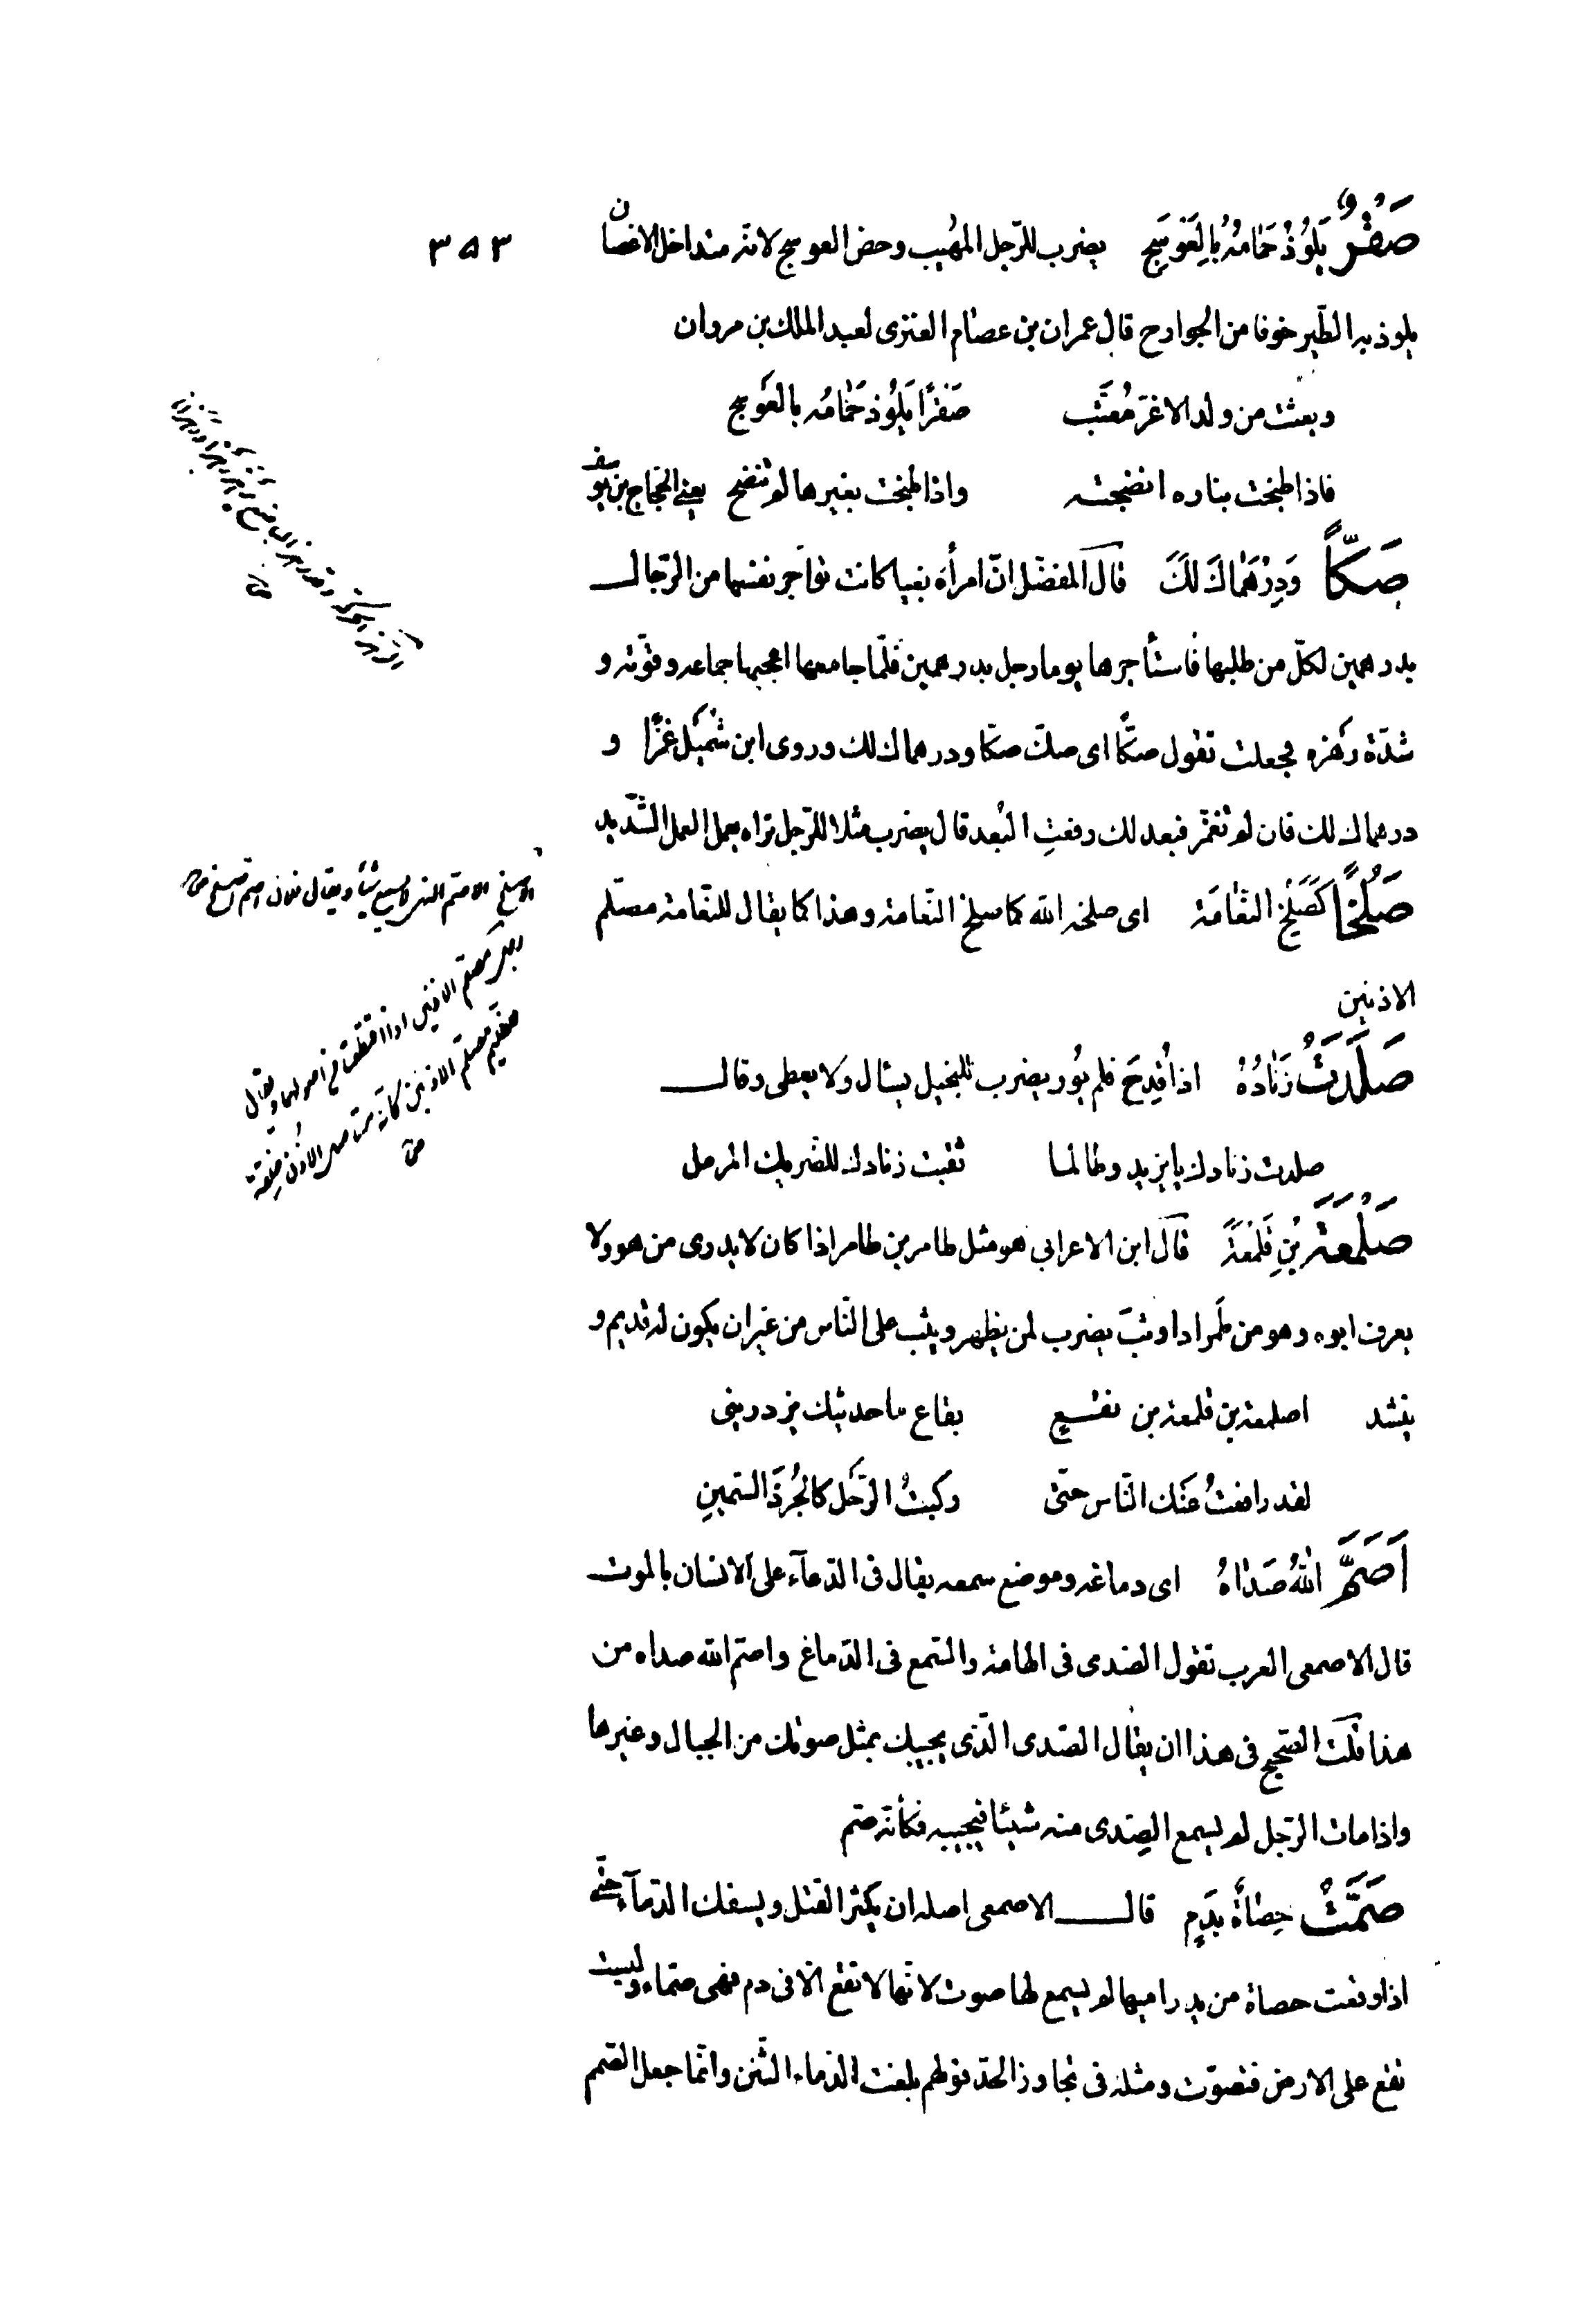 ٣٥٣
صَقْرٌ يَلُوذُ حَمَامُهُ بِالعَوسَجِ يضرب للرّجل المهُيب وخصّ العوسج لانّه متداخل الاغصان
يلوذ به الطّير خوفا من الجوارح قال عمران بن عصام العنزى لعبد الملك بن مروان
وبعثت من ولد الاغرّ مُعَتَّب صَقرًا يَلُوذ حَمَامُه بالعَوسج
فاذا طبخت بناره انضجته واذا طبخت بغيرها لم تنضج يعنى الحجّاج بن يوسف
صَكّاً وَدِرْهَمَاكَ لَكَ قال المفضّل انّ امرأة بغيا كانت تؤاجر نفسها من الرّجال
بدرهمين لكلّ من طلبها فاستأجرها يوما رجل بدرهمين فلمّا جامعها اعجبها جماعه وقوّته و
شدّة رَهزه فجعلت تقول صكّا اى صكّ صكّا ودرهماك لك وروى ابن شُمَيل غَمْزًا و
درهماك لك فان لم تغمز فبعد لك رفعتِ البُعد قال يضرب مثلا للرّجل تراه يعمل العمل الشّديد
صَلْخًا كَصَلْخِ النَّعَامَة اى صلخه الله كما صلخ النّعامة وهذا كما يقال للنّعامة مصلّم
الاذنين
صَلَدَتْ زَنَادُهُ اذا قُدِحَ فلم يُور يضرب للبخيل يسأل ولا يعطى وقال
صلدت زنادك يا يزيد وطالما ثقبت زنادك للضّريك المرمل
صَلْمَعَةُ بْنِ قَلْمَعَةَ قال ابن الاعرابى هو مثل طامر بن طامر اذا كان لا يدرى من هو ولا
يعرف ابوه وهو من طَمَر اذا وثبَ يضرب لمن يظهر ويثب على النّاس من غير ان يكون له قديم و
ينشد اصلمعة بن قلمعة بن فقع بقاع ما حديثك يزدرينى
لقد دافعتُ عَنك النّاس حتّى ركبتُ الرّحل كالجُرَذ السّمينِ
اَصَمَّ اللهُ صَدَاهُ اى دماغه وموضع سمعه يقال فى الدّعآء على الانسان بالموت
قال الاصمعى العرب تقول الصّدى فى الهامة والسّمع فى الدّماغ واصمّ الله صداه من
هذا قلت الصّحيح فى هذا ان يقال الصّدى الّذى يجيبك بمثل صوتك من الجبال وغيرها
واذا مات الرّجل لم يسمع الصّدى منه شيئا فيجيبه فكأنّه صمّ
صَمَّتْ حصَاةٌ بِدَمٍ قال الاصمعى اصله ان يكثر القتل ويسفك الدّمآء حتّى
اذا وقعت حصاة من يد راميها لم يسمع لها صوت لانّها لا تقع الّا فى دم فهى صمّاء وليست
تقع على الارض فتصوّت ومثله فى تجاوز الحدّ قولهم بلغت الدّماء الثّنن وانّما جعل الصّمم
الاصلخ الاصمّ الذى لا يسمع شيئا ويقال فلان اصمّ اصلخ
رجل مصلّم الاذنين اذا اقتطعتا من اصولهما ويقال
ظليم مصلّم الاذنين كانّه مستأصل الاذن خلقة